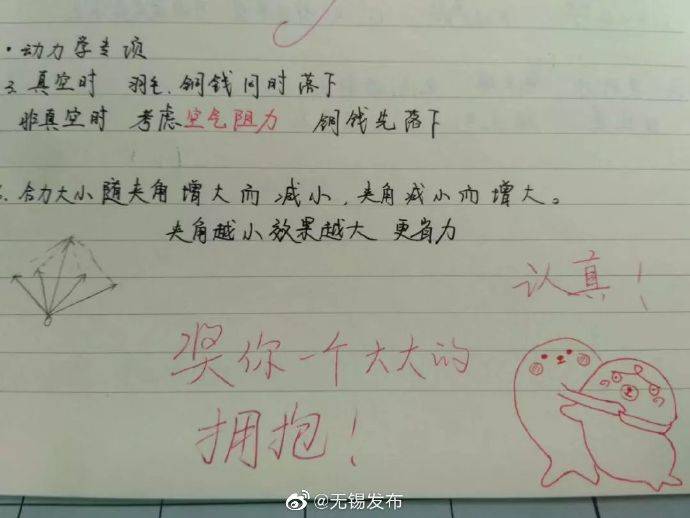 ·动力学专项
3.真空时 羽毛、铜钱同时落下
非真空时 考虑空气阻力 铜钱先落下
合力大小随夹角增大而减小,夹角减小而增大。
夹角越小效果越大 更省力
o
认真!
奖你一个大大的
拥抱!
@无锡发布